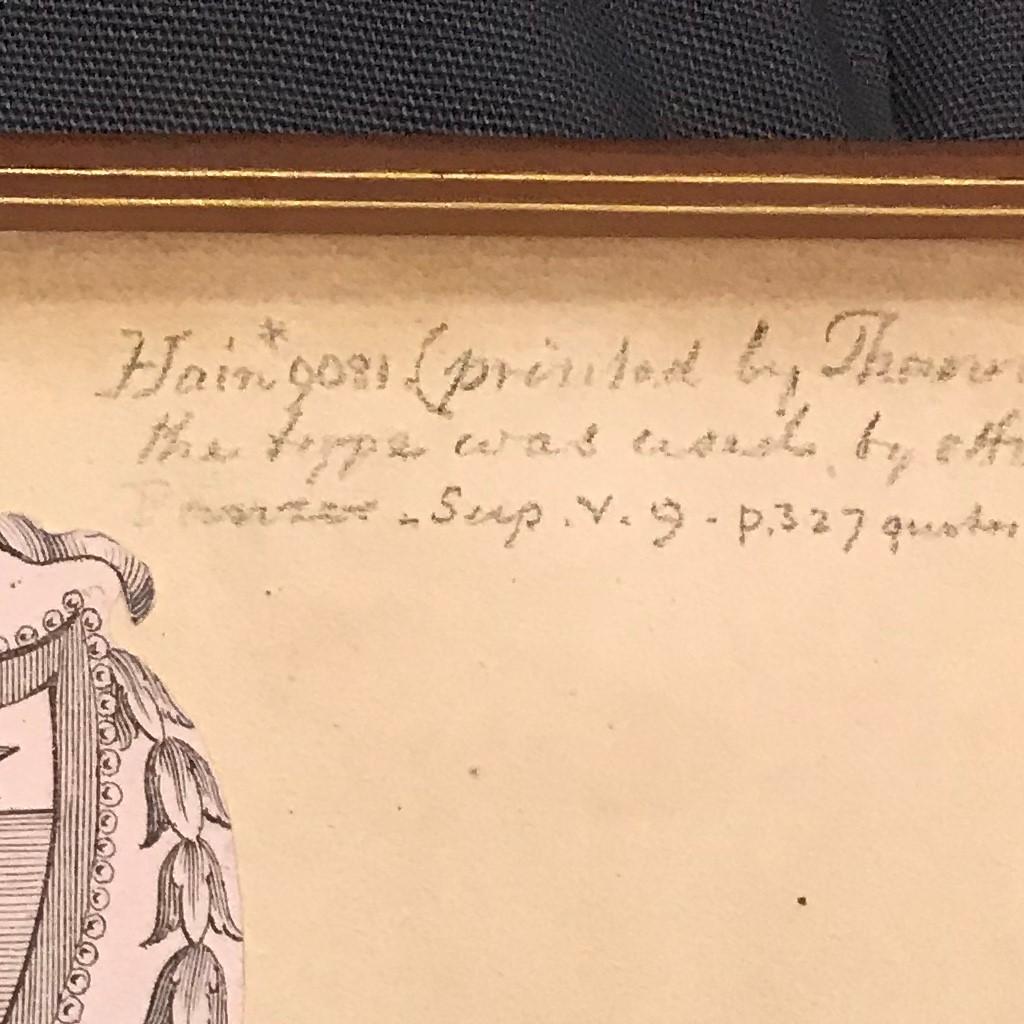 Hain* 9081 (printed by
the type was used by
- Sup. V. 9 - p. 327 quotes